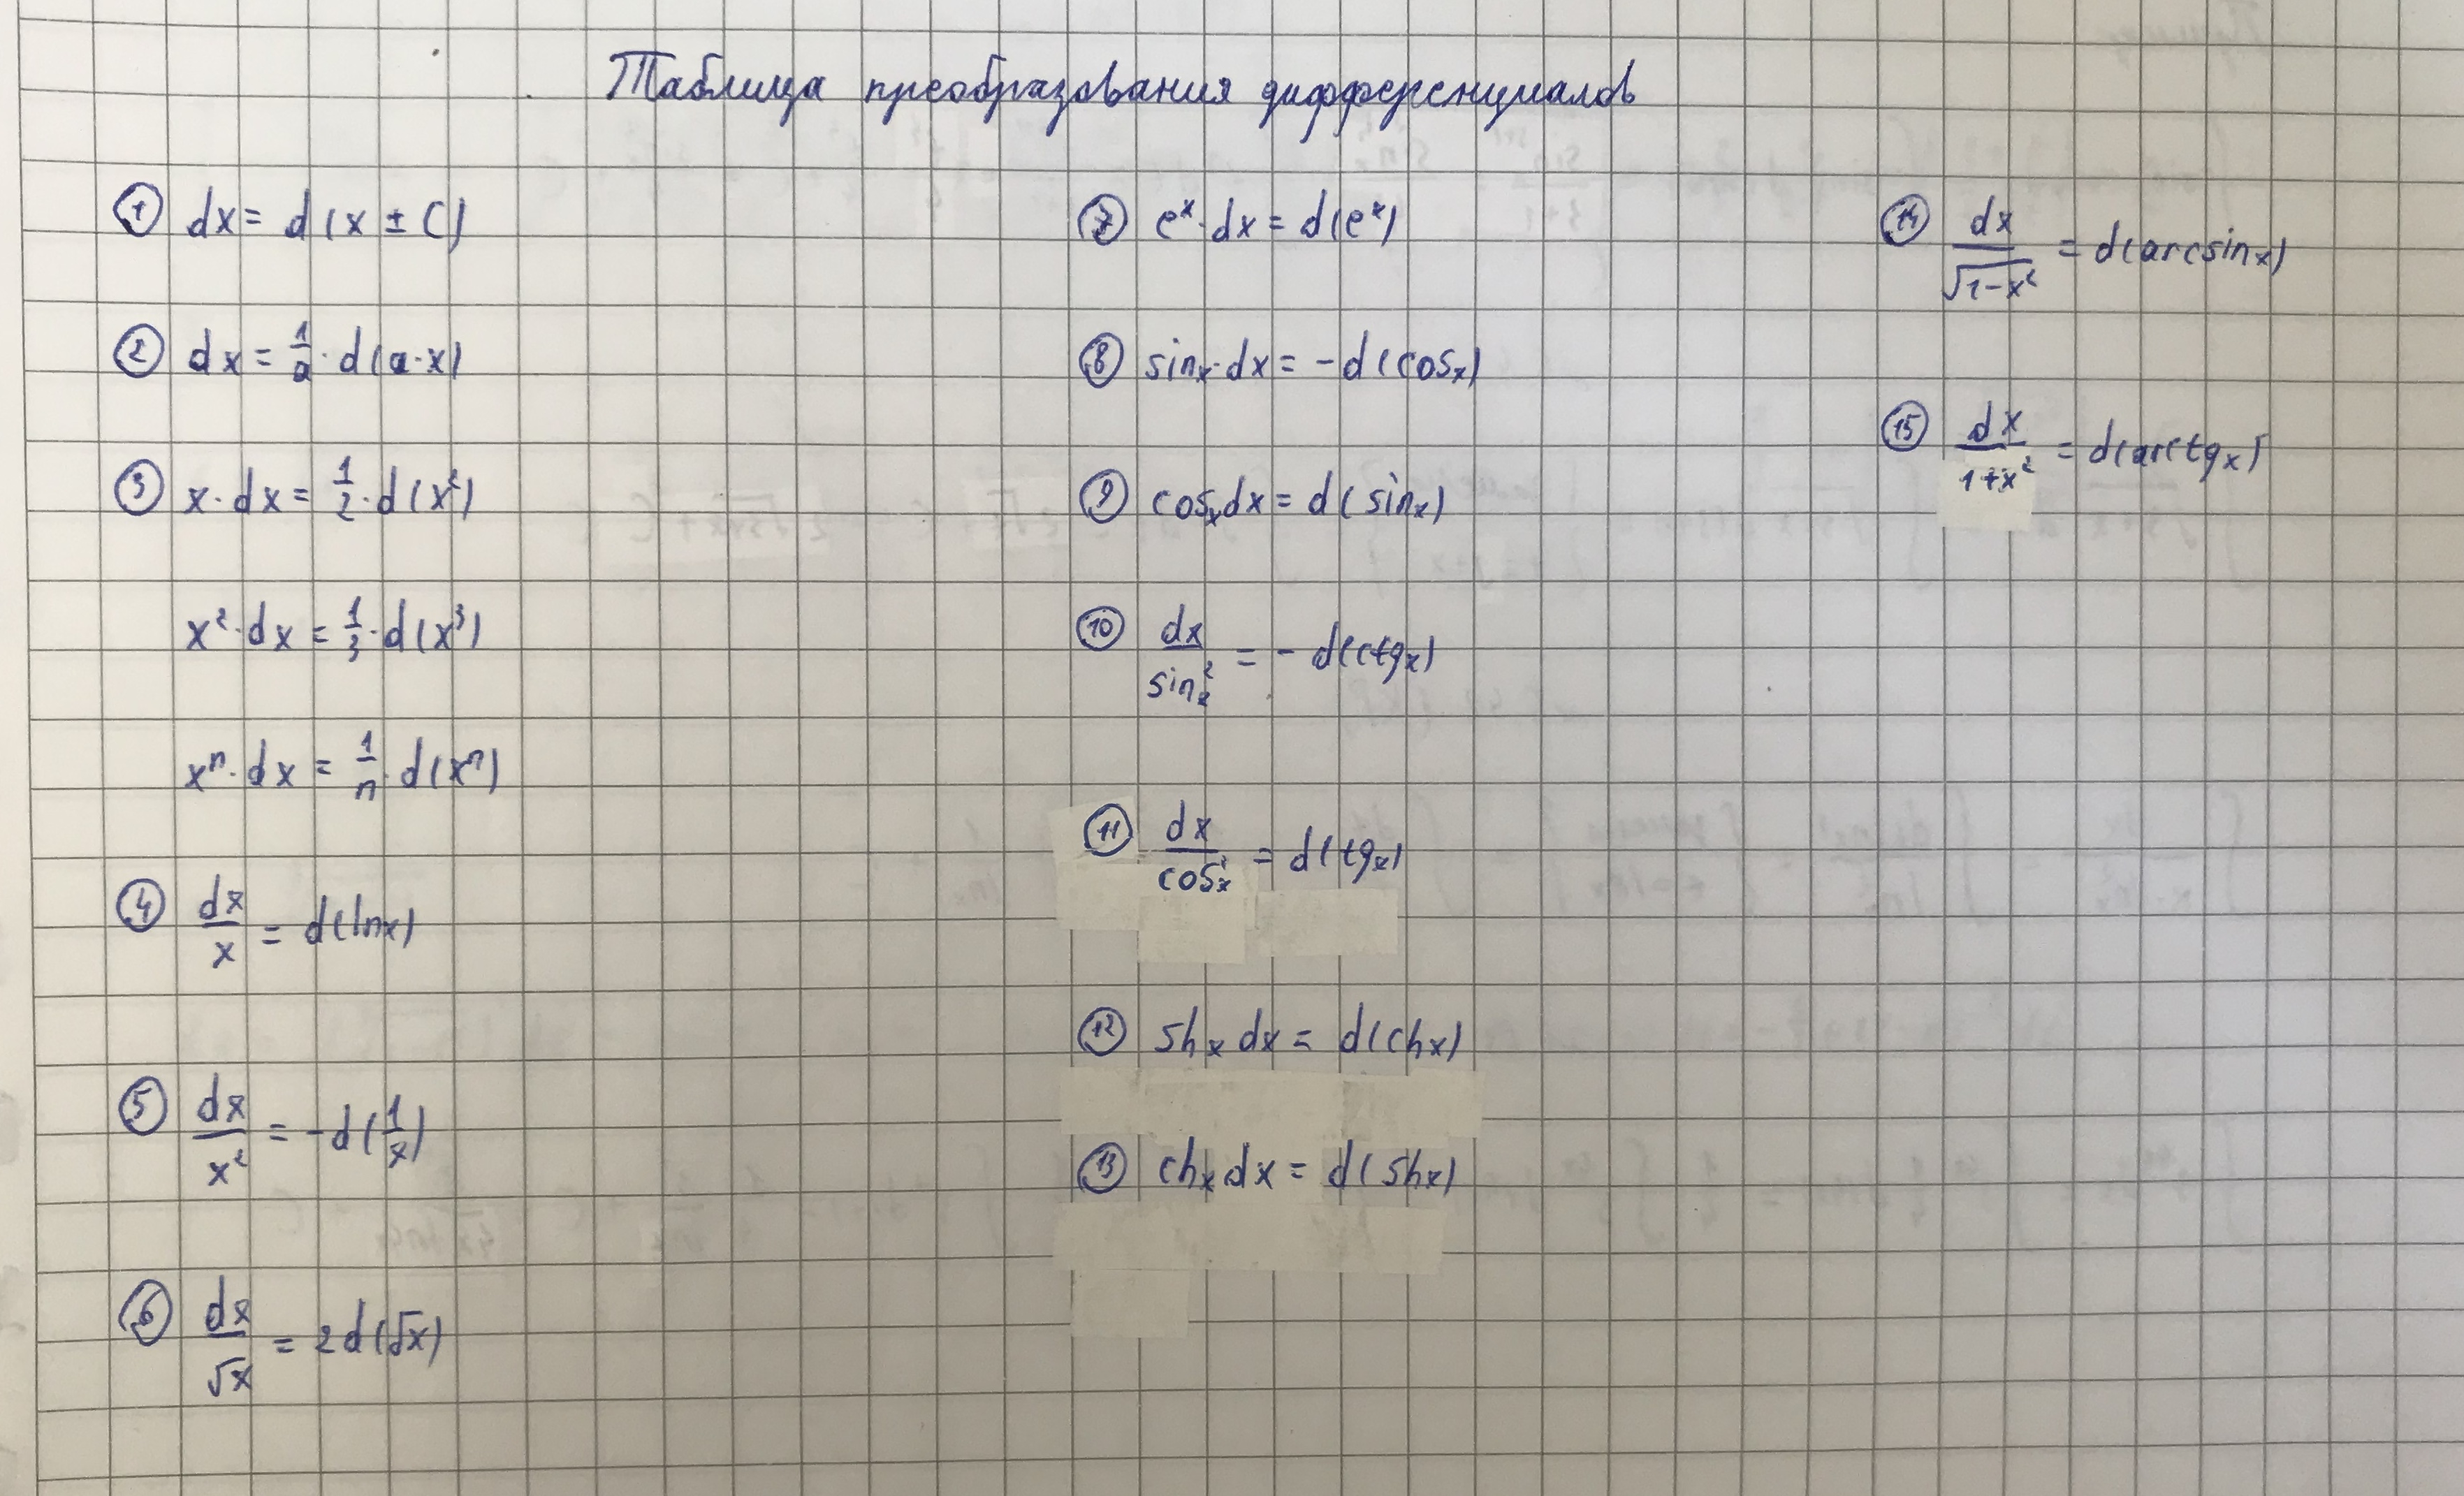 Таблица преобразования дифференциалов
① dx = d(x ± C)
② dx = 1/a · d(a·x)
③ x·dx = 1/2 · d(x²)
x²·dx = 1/3 · d(x³)
xⁿ·dx = 1/n · d(xⁿ)
④ dx/x = d(lnx)
⑤ dx/x² = -d(1/x)
⑥ dx/√x = 2d(√x)
⑦ eˣ·dx = d(eˣ)
⑧ sinx·dx = -d(cosx)
⑨ cosxdx = d(sinx)
⑩ dx/sin²x = -d(ctgx)
⑪ dx/cos²x = d(tgx)
⑫ shx dx = d(chx)
⑬ chx dx = d(shx)
⑭ dx/√1-x² = d(arcsinx)
⑮ dx/1+x² = d(arctgx)